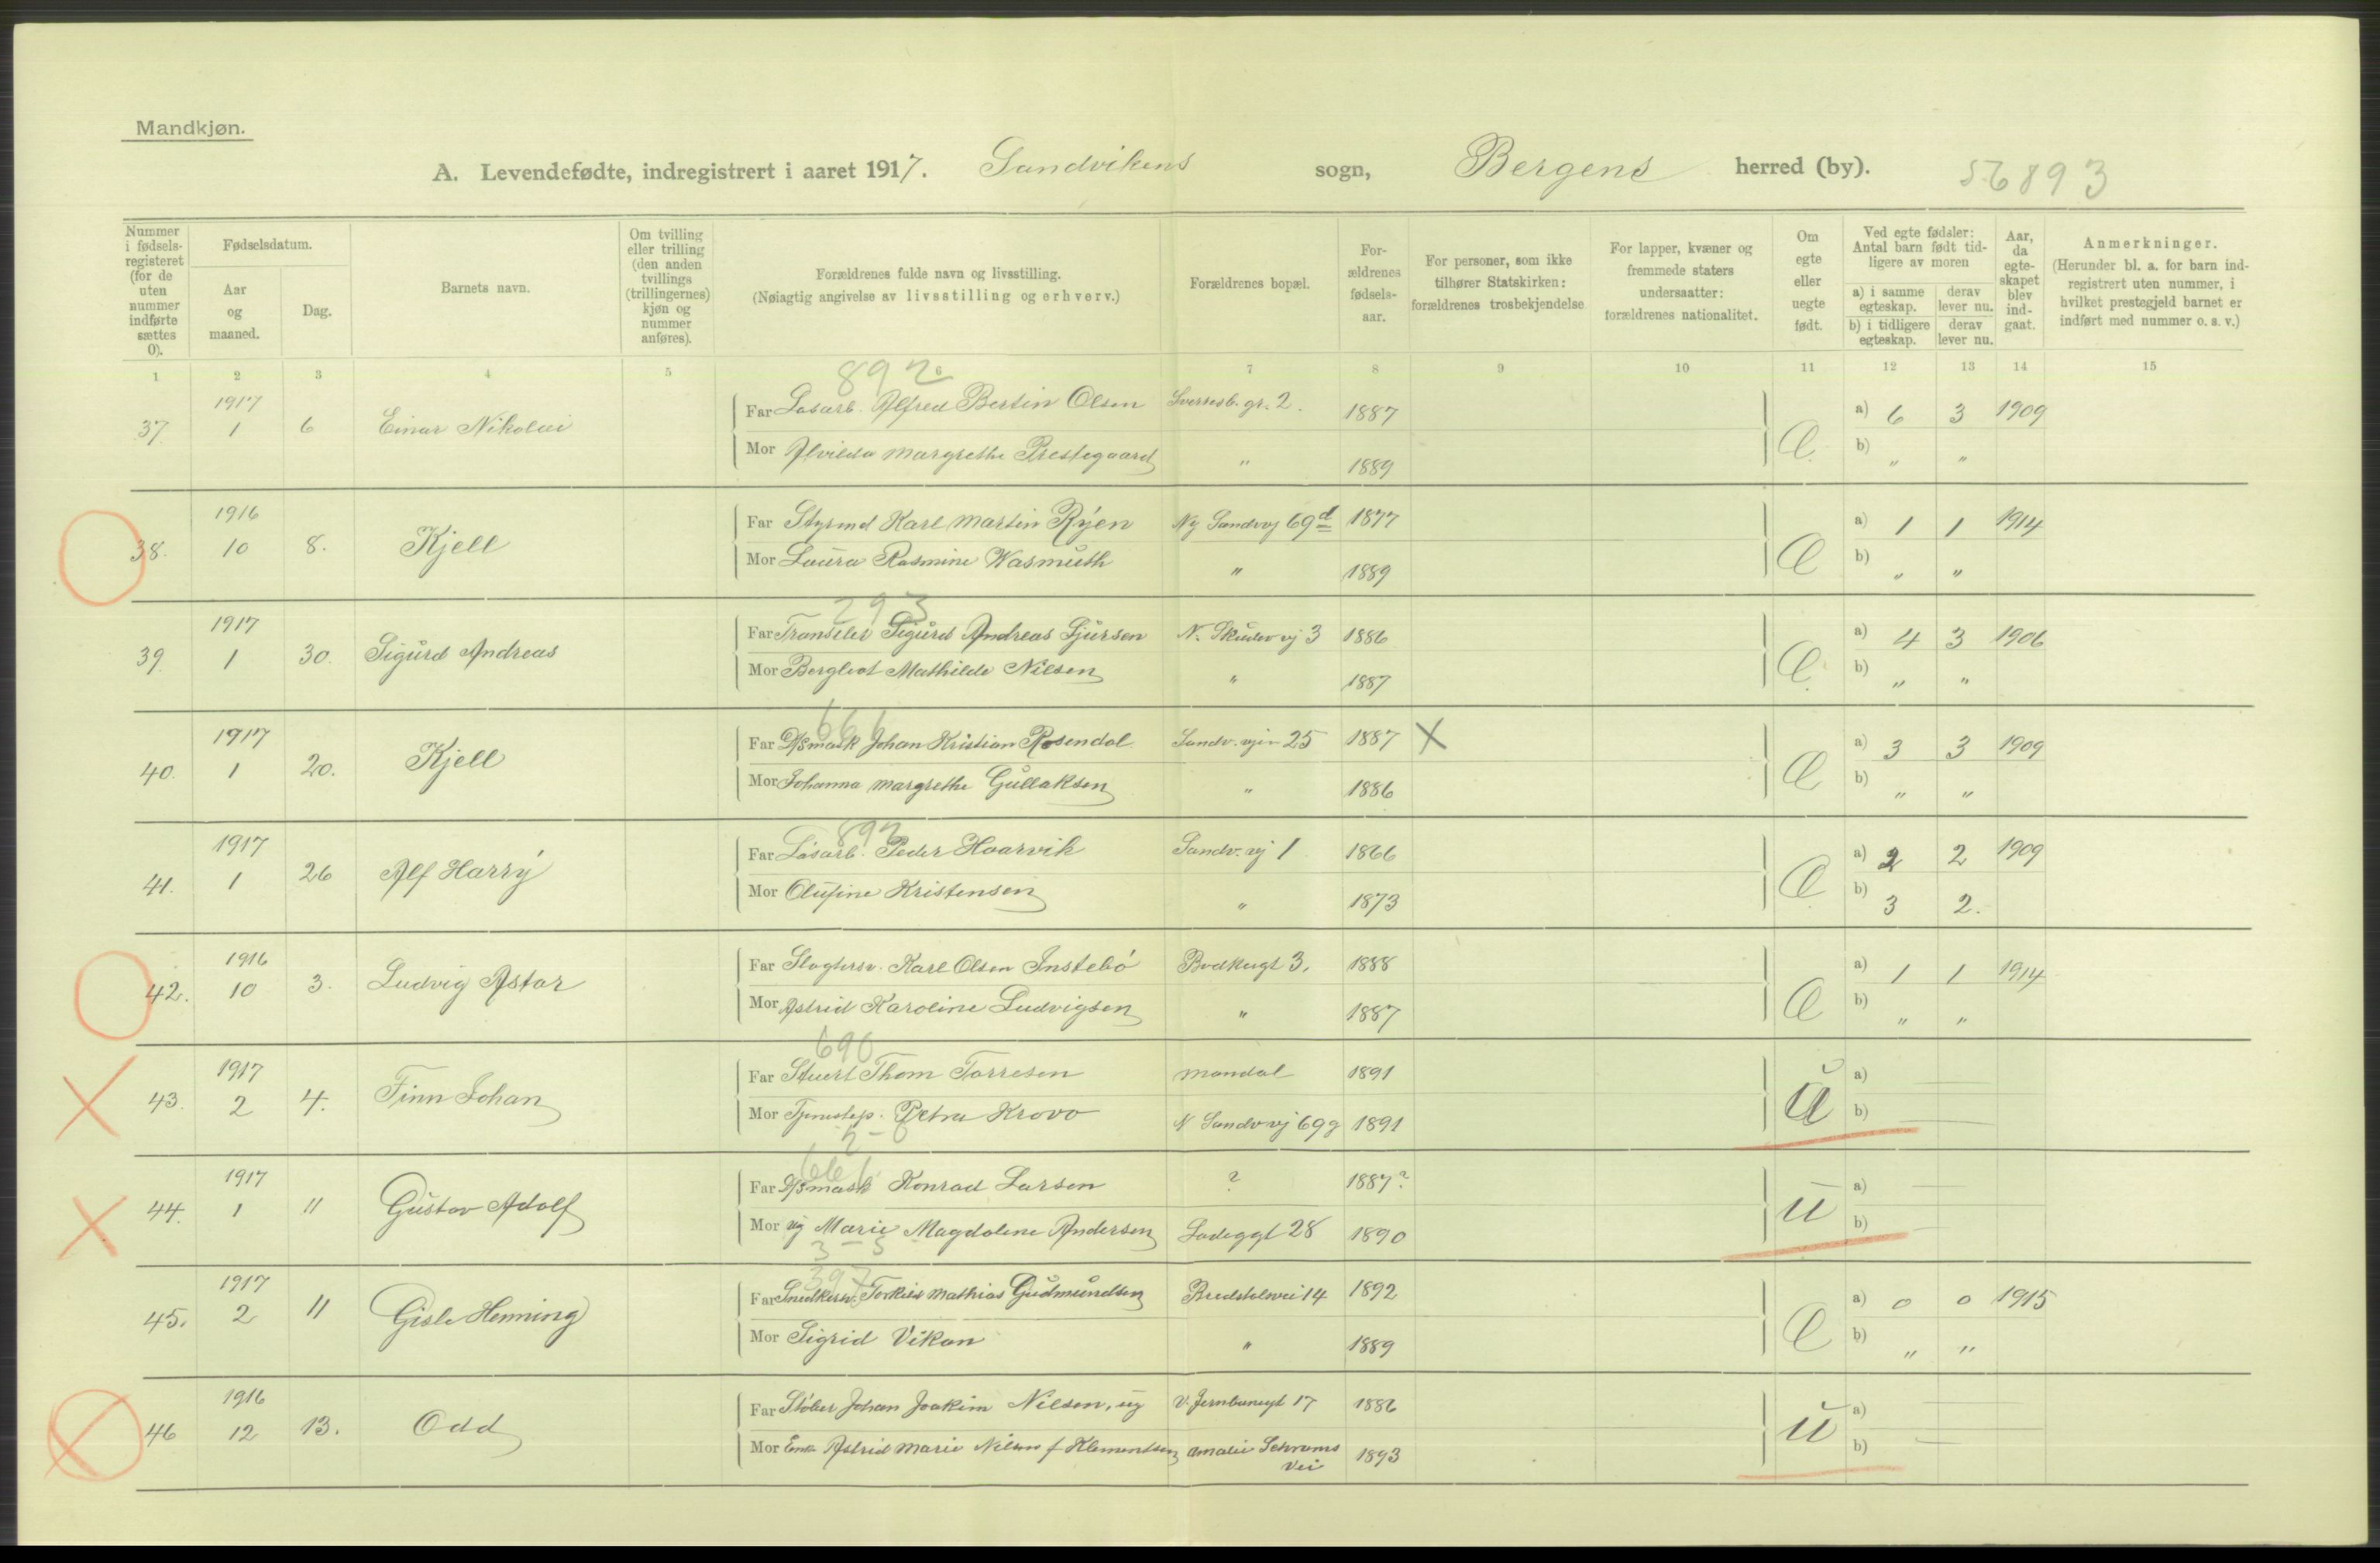 Mandkjøn.
A. Levendefødte, indregistrert i aaret 1917. Sandvikens sogn, Bergens herred (by). 56893
Nummer i fødselsregisteret (for de uten nummer indførte sættes 0).
Fødselsdatum.
Aar og maaned.
Dag.
Barnets navn.
Om tvilling eller trilling (den anden tvillings (trillingernes) kjøn og nummer anføres).
Forældrenes fulde navn og livsstilling.
(Nøiagtig angivelse av livsstilling og erhverv.)
Forældrenes bopæl.
Forældrenes fødselsaar.
For personer, som ikke tilhører Statskirken: forældrenes trosbekjendelse
For lapper, kvæner og fremmede staters undersaatter: forældrenes nationalitet.
Om egte eller uegte født.
Ved egte fødsler: Antal barn født tidligere av moren
a) i samme egteskap. derav lever nu.
b) i tidligere egteskap. derav lever nu.
Aar, da egteskapet blev indgaat.
Anmerkninger.
(Herunder bl. a. for barn indregistrert uten nummer, i hvilket prestegjeld barnet er indført med nummer o. s. v.)
1 2 3 4 5 6 7 8 9 10 11 12 13 14 15
892
37. 1917 1 6 Einar Nikolai Far Løsarb. Alfred Bertin Olsen Sverresb. gr. 2. 1887 E. a) 6 3 1909
Mor Alvilda Margrethe Prestegaard " 1889 b) " "
38. 1916 10 8. Kjell Far Styrmd Karl Martin Ryen Ny Sandvvj 69d 1877 E a) 1 1 1914
Mor Laura Rasmine Wasmuth " 1889 b) " "
293
39. 1917 1 30. Sigurd Andreas Far Sigurd Andreas Sjursen N. Skudevvj 3 1886 E. a) 4 3 1906
Mor Bergliot Mathilde Nilsen " 1887 b) " "
661
40. 1917 1 20. Kjell Far D/Smask Johan Kristian Rosendal Sandv. vjen 25 1887 X E a) 3 3 1909
Mor Johanna Margrethe Gullaksen " 1886 b) " "
892
41. 1917 1 26 Alf Harry Far Løsarb. Peder Haarvik Sandv. vj 1 1866 E a) 2 2 1909
Mor Olufine Kristensen " 1873 b) 3 2.
42. 1916 10 3. Ludvig Astar Far Slagtersv. Karl Olsen Instebö 3. 1888 E a) 1 1 1914
Mor Astrid Karoline Ludvigsen " 1887 b) " "
690
43. 1917 2 4. Finn Johan Far Stuert Thom Torresen Mandal 1891 U a)
Mor Tjenestep. Petra Krovo N Sandvvj 69g 1891 b)
661
44. 1917 1 11 Gustav Adolf Far D/Smask Konrad Larsen ? 1887? U a)
Mor ug Marie Magdalene Andersen Ladeggt 28 1890 b)
3 - 3
397
45. 1917 2 11 Gisle Henning Far Snedkersv. Torkild Mathias Gudmundsen 14 1892 E a) 0 0 1915
Mor Sigrid Vikan " 1889 b) " "
46 1916 12 13. Odd Far Støber Johan Joakim Nilsen, ug V. Jernbanegt 17 1886 U a)
Mor Enke Astrid Marie Nilsen f Klementsen Amalie Schrams Vei 1893 b)